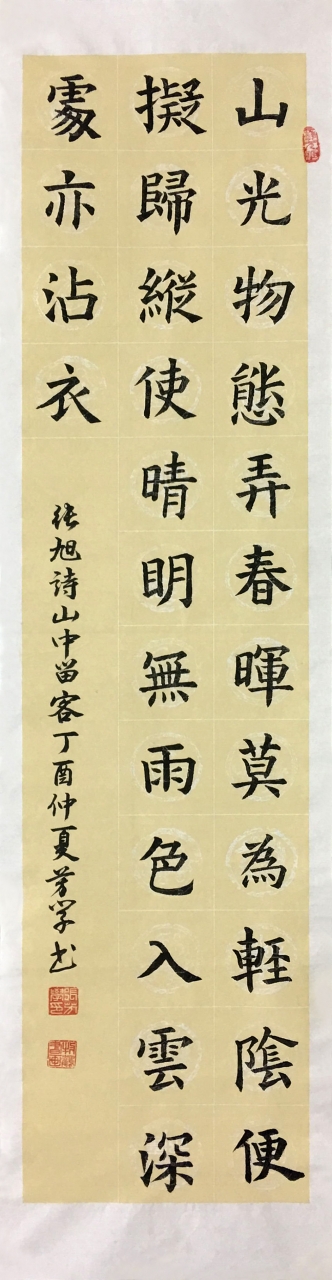 山光物態弄春暉莫為輕陰便
擬歸縱使晴明無雨色入雲深
處亦沾衣
张旭詩山中留客丁酉仲夏芳学书